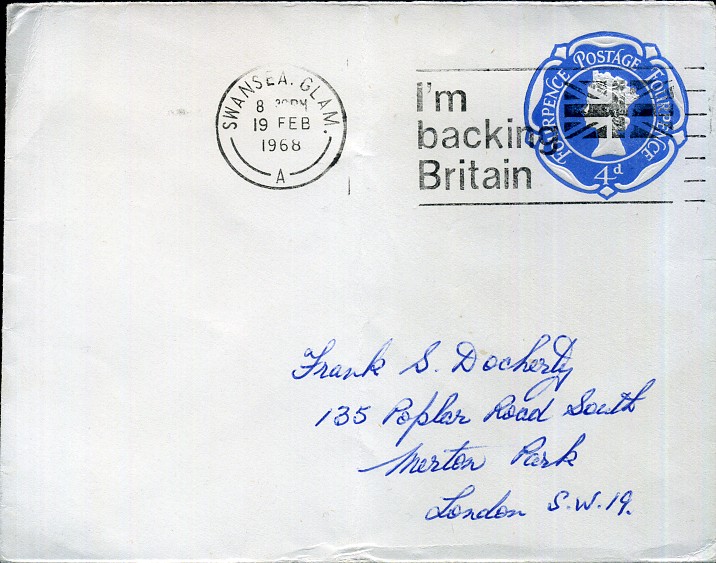 SWANSEA. GLAM.
8 30PM
19 FEB
1968
A
I'm
backing
Britain
FOURPENCE POSTAGE FOURPENCE
4d
Frank S. Docherty
135 Poplar Road South
Merton Park
London S.W.19.